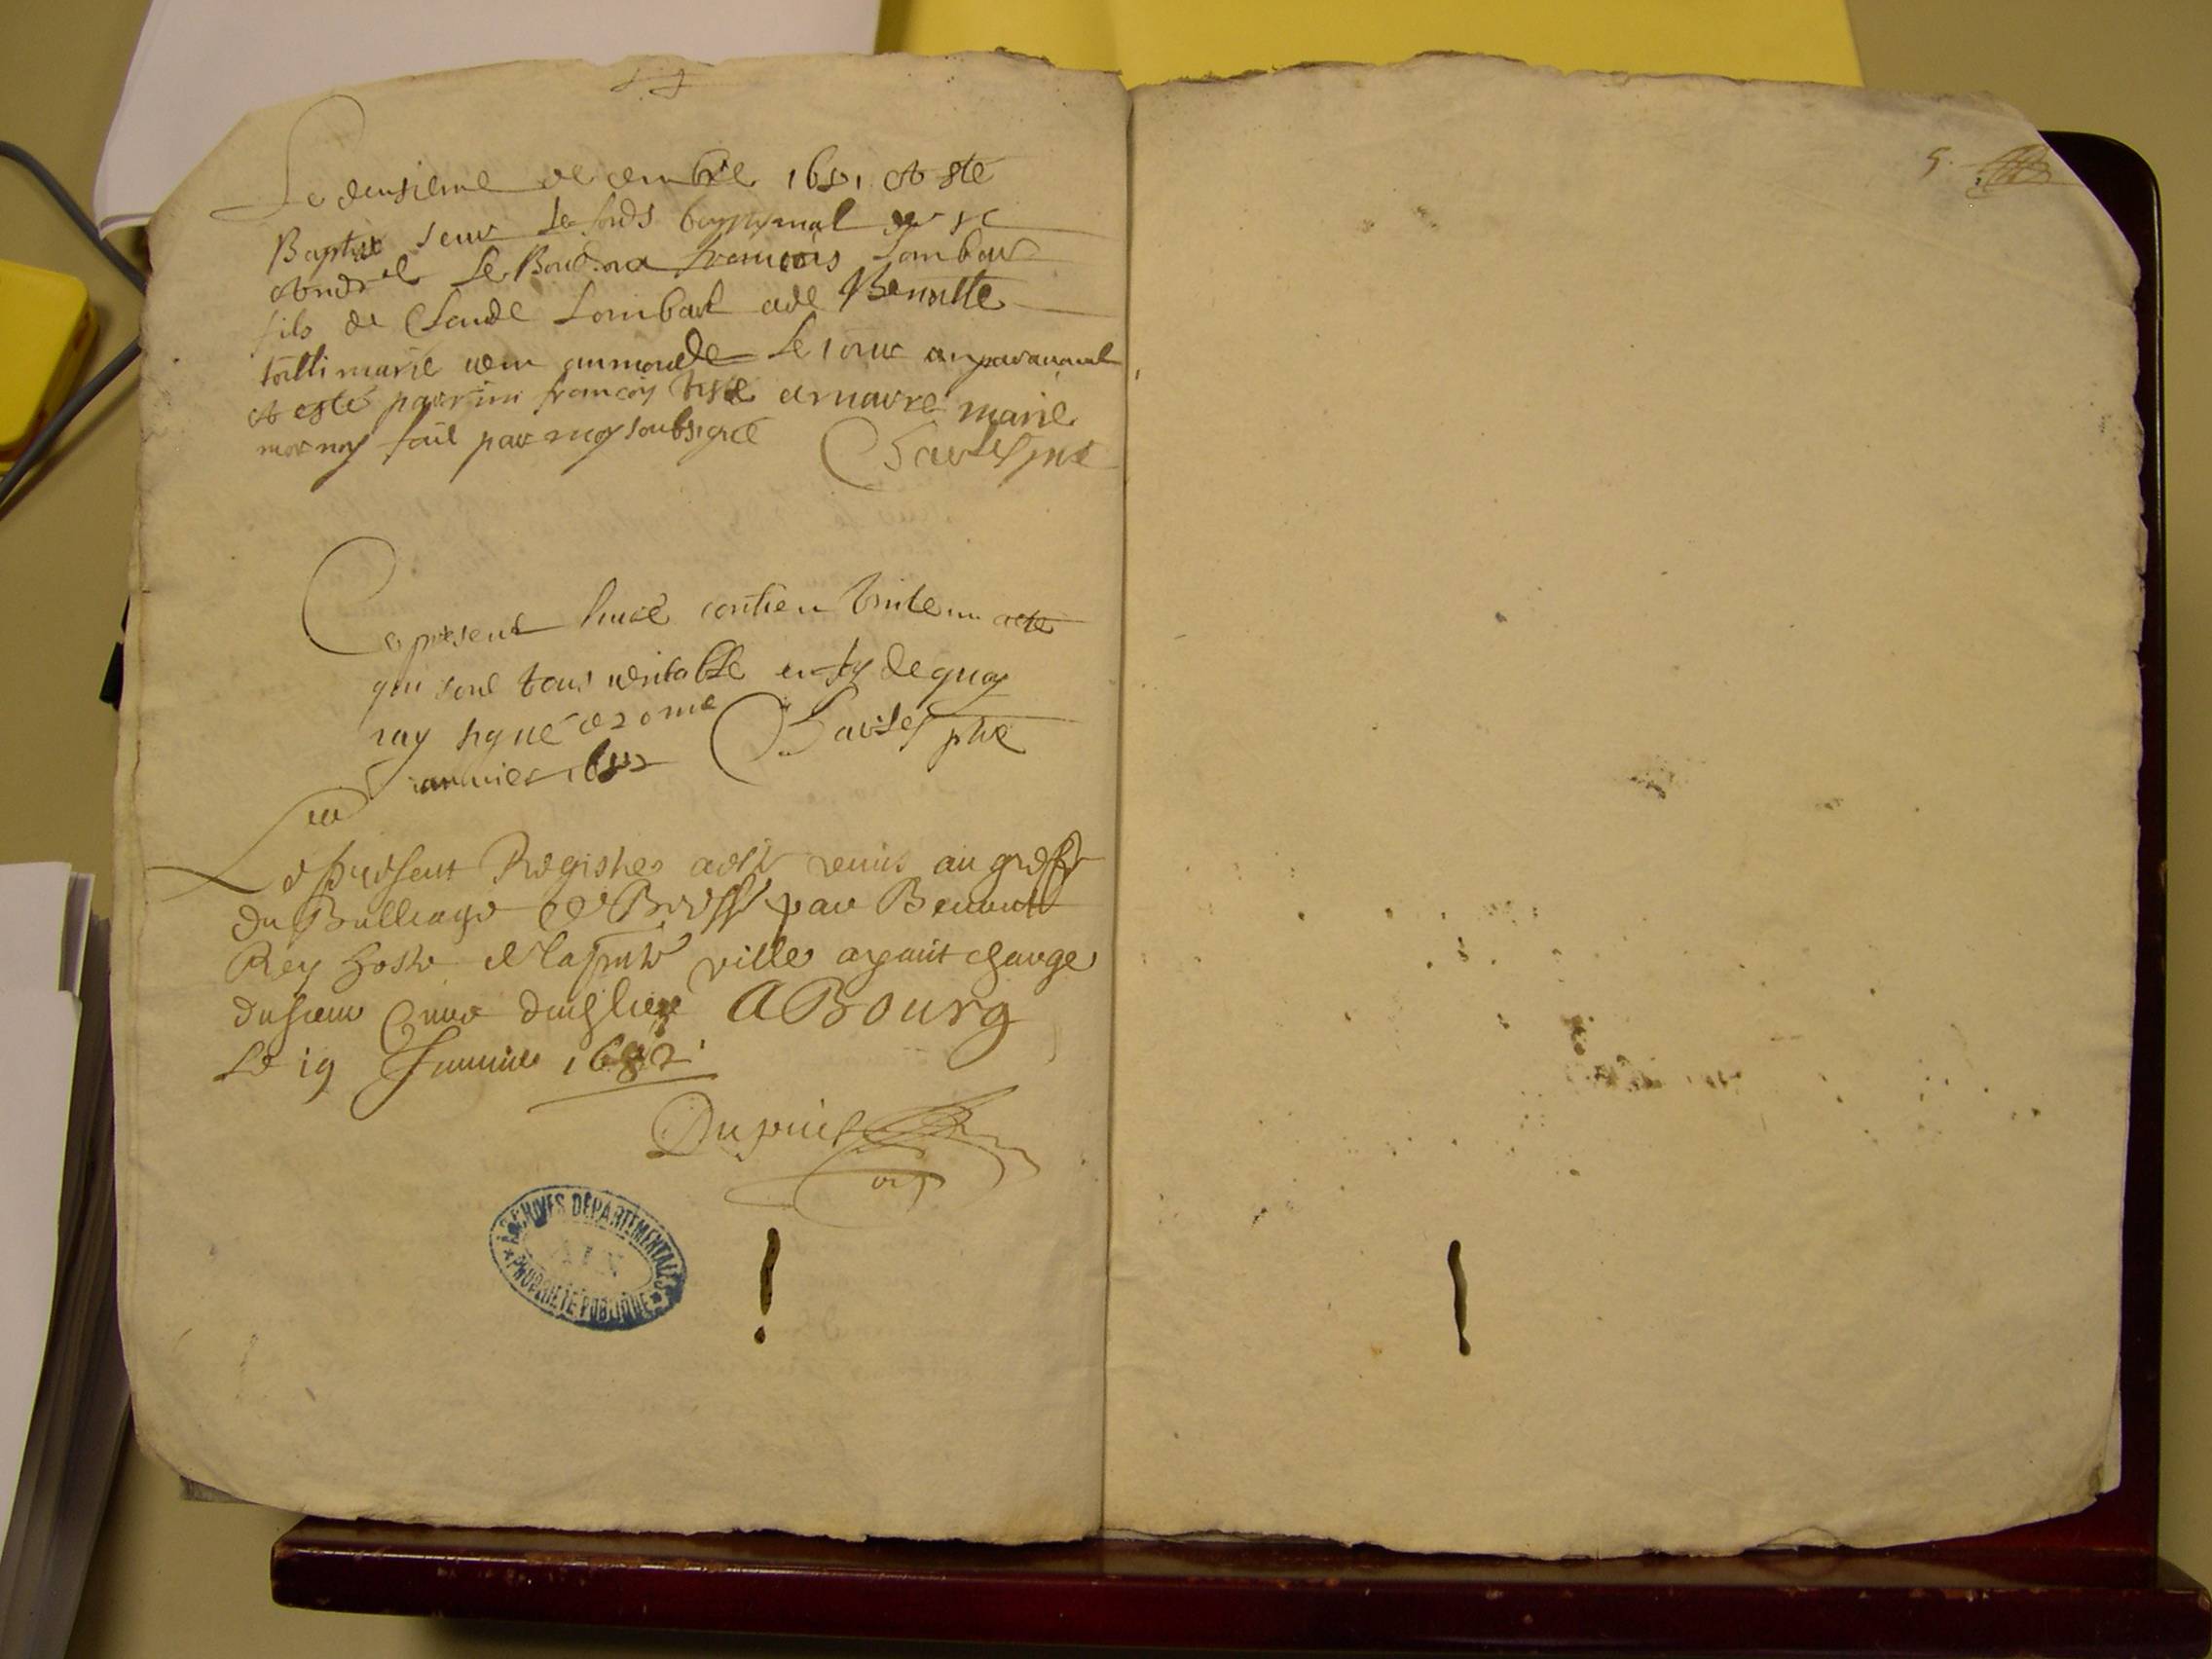 Le deusieme decembre 1681 A este
Baptisé seur Le fonds baptismal de st
André Le Bouchoux françois Lombar
fils de Claude Lombart et de Benoitte
marié venu au monde Le iour auparavant
et esté parrin françois et marre marie
fait par moy soubsigné
Ce present livre contien vinte un acte
qui sont tous veritable en foy de quoy
iay signé ce 20me
ianvier 1682
Le present Registre a esté remis au greffe
du Bailliage de Bresse par Benoist
Rey hoste de la ville ayant charge
du sieur Curé A Bourg
Le 19 Janvier 1682
Dupuis
ARCHIVES DÉPARTEMENTALES
AIN
PROPRIÉTÉ PUBLIQUE
5.